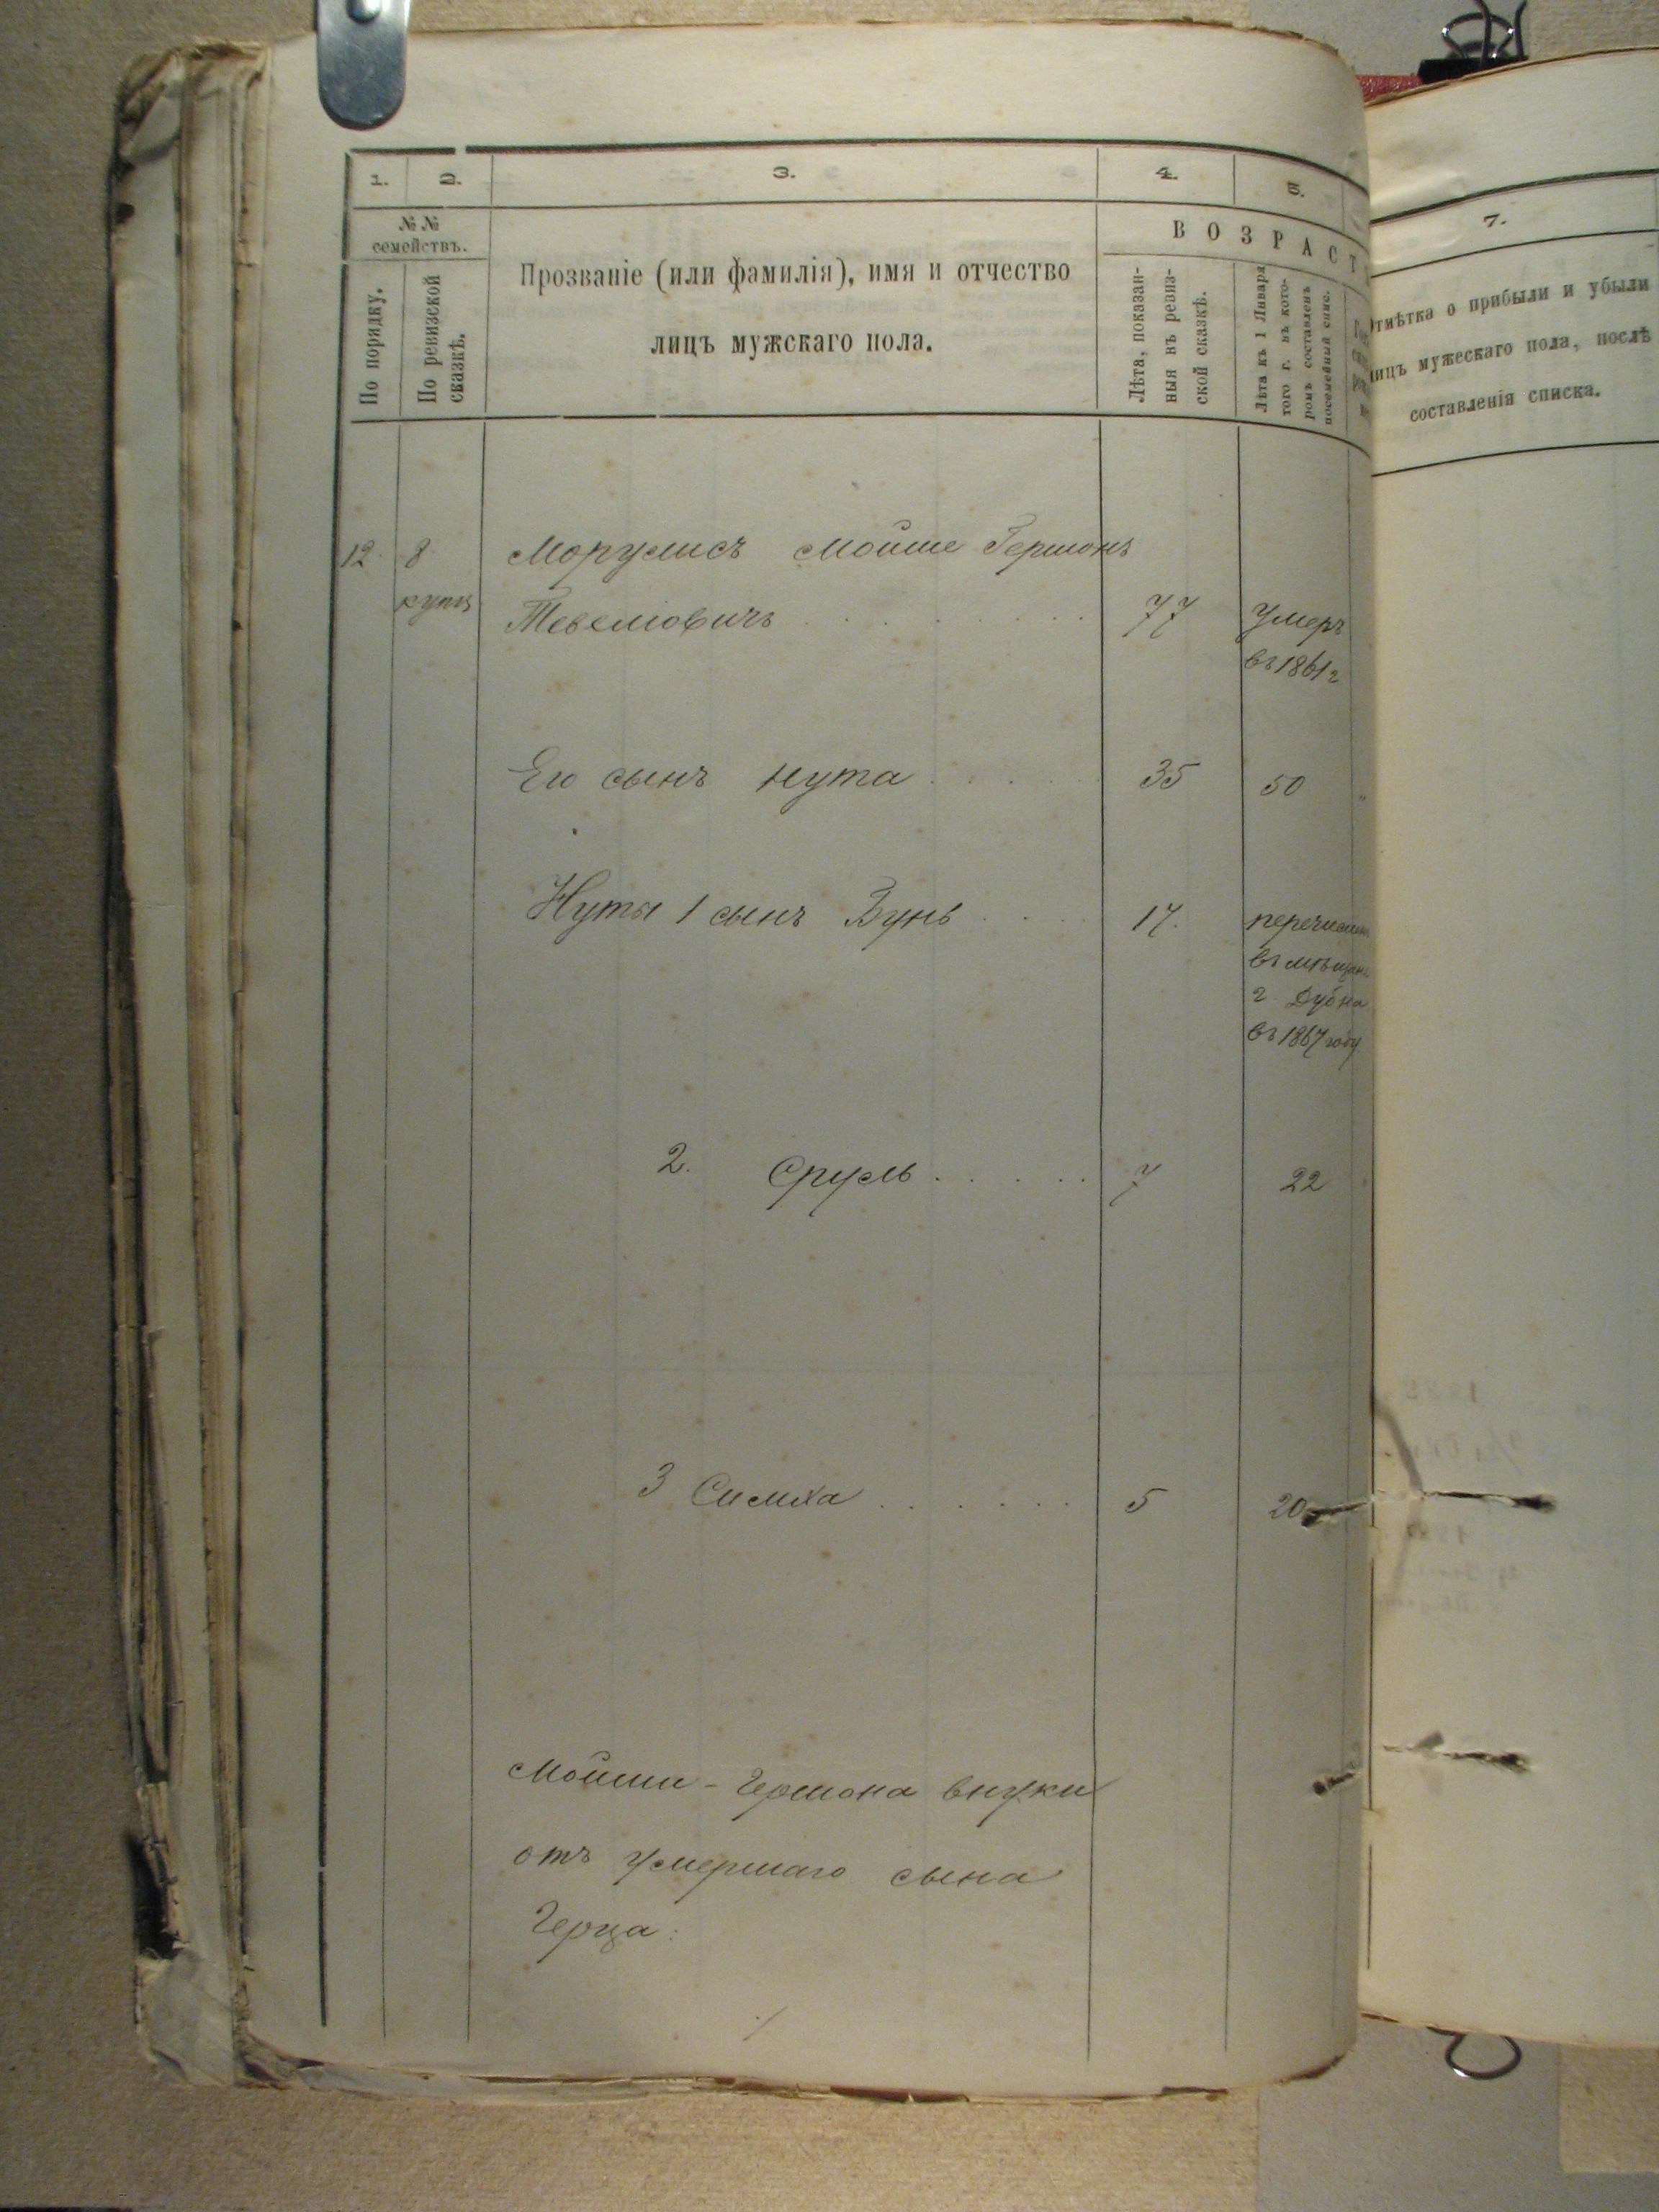 1. 2. 3. 4. 5.
№№ семействъ.
По порядку.
По ревизской сказкѣ.
Прозваніе (или фамилія), имя и отчество
лицъ мужскаго пола.
ВОЗРАСТ
Лѣта, показан-
ныя въ ревиз-
ской сказкѣ.
Лѣта къ 1 Января
того г. въ кото-
ромъ составленъ
посемейный спис.
7.
Отмѣтка о прибыли и убыли
лицъ мужескаго пола, послѣ
составленія списка.
12. 8. Моргулисъ Мойше Гершонъ
купц Тевелювичъ 77 умеръ
въ 1861 г
Его сынъ Нута 35 50
Нуты 1 сынъ Зунь 17. перечислен
въ мѣщане
г Дубна
въ 1867 году
2. Сруль 7 22
3 Симха 5 20
Мойши-Гершона внуки
отъ умершаго сына
Герца: